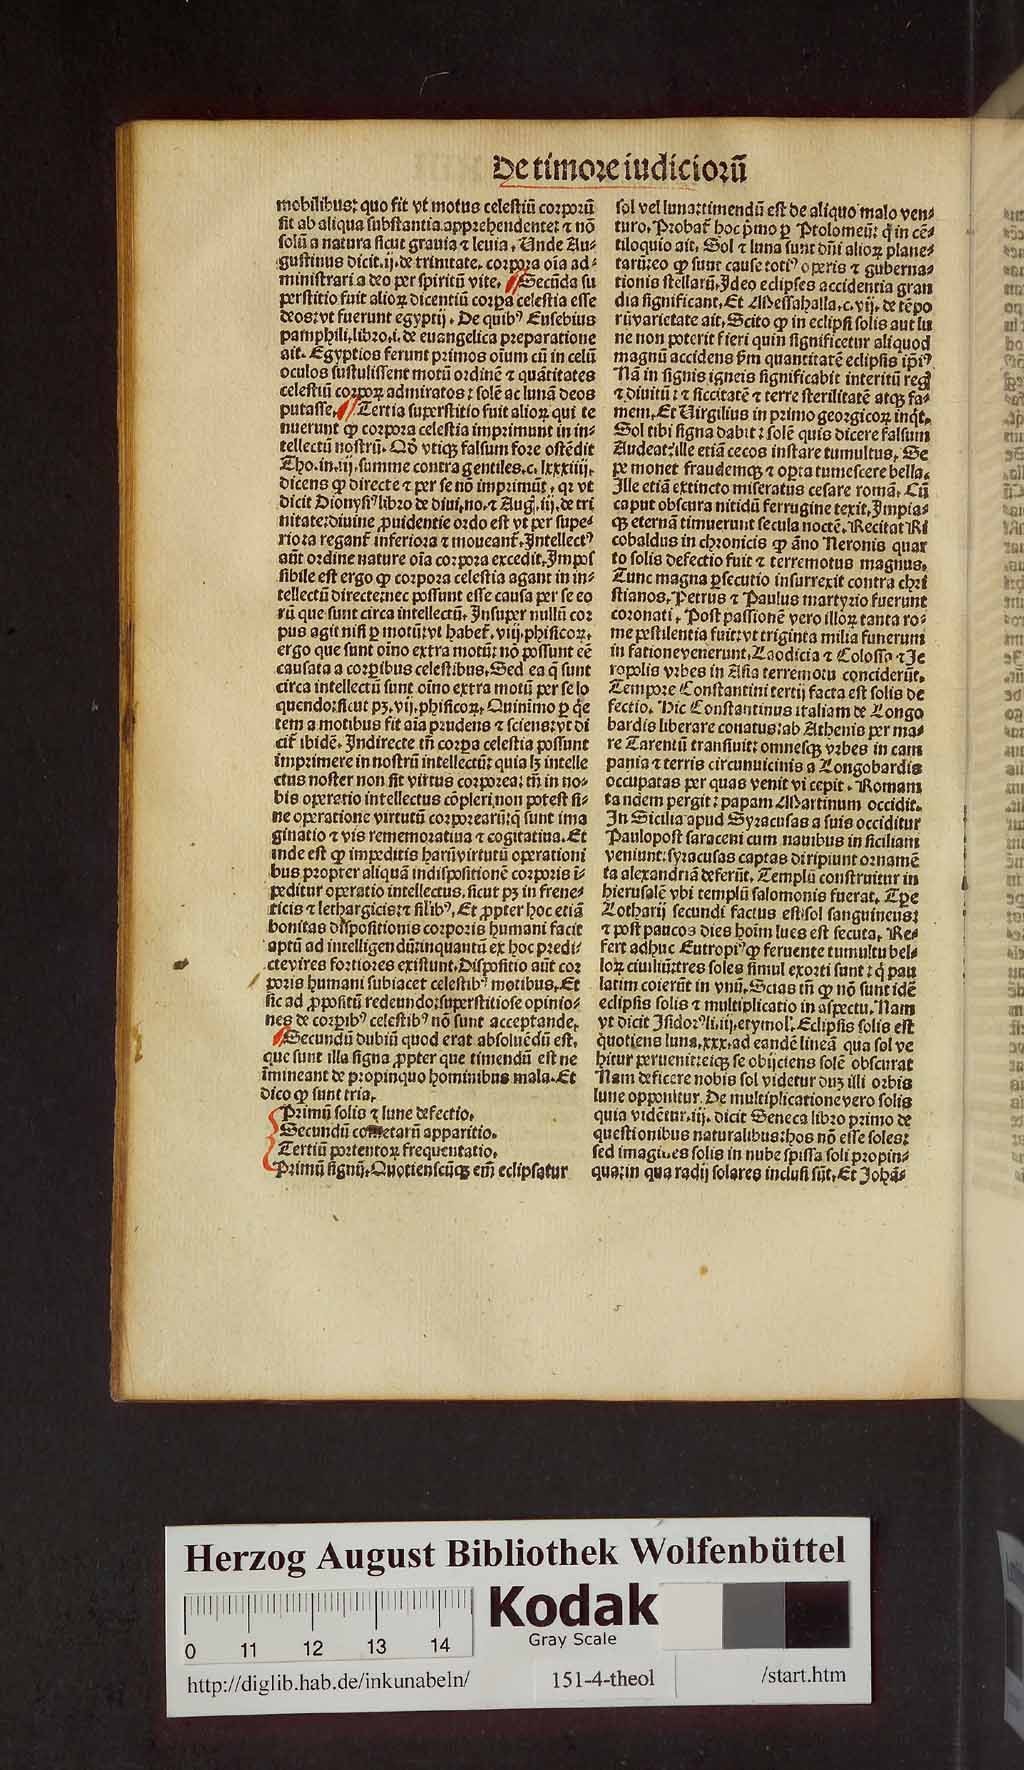 De timore iudiciorū
mobilibus: quo fit vt motus celestiū corporū
fit ab aliqua substantia apprehendente: ⁊ nō
solū a natura sicut grauia ⁊ leuia. Unde Au-
gustinus dicit .ij. de trinitate. corpora oīa ad-
ministrari a deo per spiritū vite. Secūda su
perstitio fuit alioꝝ dicentiū corpa celestia esse
deos: vt fuerunt egyptij. De quibꝰ Eusebius
pamphili. libro .i. de euangelica preparatione
ait. Egyptios ferunt primos oīum cū in celū
oculos sustulissent motū ordinē ⁊ quātitates
celestiū corpoꝝ admiratos: solē ac lunā deos
putasse. Tertia superstitio fuit alioꝝ qui te
nuerunt ꝙ corpora celestia imprimunt in in-
tellectū nostrū. Qd̄ vtiqꝫ falsum fore ostēdit
Tho. in .iij. summe contra gentiles. c. lxxxiiij.
dicens ꝙ directe ⁊ per se nō imprimūt. qꝛ vt
dicit Dionysiꝰ libro de diui. no. ⁊ Aug. iij. de tri
nitate: diuine ꝓuidentie ordo est vt per supe-
riora regant̄ inferiora ⁊ moueant̄. Intellectꝰ
aūt ordine nature oīa corpora excedit. Impos
sibile est ergo ꝙ corpora celestia agant in in-
tellectū directe: nec possunt esse causa per se eo
rū que sunt circa intellectū. Insuper nullū cor
pus agit nisi ꝑ motū: vt habet̄. viij. phisicoꝝ.
ergo que sunt oīno extra motū: nō possunt eē
causata a corꝑibus celestibus. Sed ea q̄ sunt
circa intellectū sunt oīno extra motū per se lo
quendo: sicut pꝫ. vij. phisicoꝝ. Quinimo ꝑ q̄e
tem a motibus fit aīa prudens ⁊ sciens: vt di
cit̄ ibidē. Indirecte tn̄ corpa celestia possunt
imprimere in nostrū intellectū: quia lꝫ intelle
ctus noster non sit virtus corporea: tn̄ in no-
bis operatio intellectus cōpleri non potest si-
ne operatione virtutū corporearū: q̄ sunt ima
ginatio ⁊ vis rememoratiua ⁊ cogitatiua. Et
inde est ꝙ impeditis harū virtutū operationi
bus propter aliquā indispositionē corporis ī-
peditur operatio intellectus. sicut pꝫ in frene-
ticis ⁊ lethargicis: ⁊ silibꝰ. Et ꝓpter hoc etiā
bonitas dispositionis corporis humani facit
aptū ad intelligendū: inquantū ex hoc predi-
cte vires fortiores existunt. Dispositio aūt cor
poris humani subiacet celestibꝰ motibus. Et
sic ad ꝓpositū redeundo: superstitiose opinio-
nes de corꝑibꝰ celestibꝰ nō sunt acceptande.
Secundū dubiū quod erat absoluēdū est.
que sunt illa signa ꝓpter que timendū est ne
īmineant de propinquo hominibus mala. Et
dico ꝙ sunt tria.
Primū solis ⁊ lune defectio.
Secundū cometarū apparitio.
Tertiū portentoꝝ frequentatio.
Primū signū. Quotienscūqꝫ em̄ eclipsatur
sol vel luna: timendū est de aliquo malo ven-
turo. Probat̄ hoc pmo ꝑ Ptolomeū: q̄ in cē-
tiloquio ait. Sol ⁊ luna sunt dn̄i alioꝝ plane-
tarū: eo ꝙ sunt cause totiꝰ operis ⁊ guberna-
tionis stellarū. Ideo eclipses accidentia gran
dia significant. Et Messahalla. c. vij. de tēpo
rū varietate ait. Scito ꝙ in eclipsi solis aut lu
ne non poterit fieri quin significetur aliquod
magnū accidens sm̄ quantitatē eclipsis ip̄iꝰ.
Nā in signis igneis significabit interitū regū
⁊ diuitū: ⁊ siccitatē ⁊ terre sterilitatē atqꝫ fa-
mem. Et Virgilius in primo georgicoꝝ inqt̄.
Sol tibi signa dabit: solē quis dicere falsum
Audeat: ille etiā cecos instare tumultus. Se
pe monet fraudemqꝫ ⁊ opta tumescere bella.
Ille etiā extincto miseratus cesare romā. Cū
caput obscura nitidū ferrugine texit. Impia-
qꝫ eternā timuerunt secula noctē. Recitat Ri
cobaldus in chronicis ꝙ āno Neronis quar
to solis defectio fuit ⁊ terremotus magnus.
Tunc magna ꝑsecutio insurrexit contra chri
stianos. Petrus ⁊ Paulus martyrio fuerunt
coronati. Post passionē vero illoꝝ tanta ro-
me pestilentia fuit: vt triginta milia funerum
in fatione venerunt. Laodicia ⁊ Colossa ⁊ Ie
ropolis vrbes in Asia terremotu conciderūt.
Tempore Constantini tertij facta est solis de
fectio. Hic Constantinus italiam de Longo
bardis liberare conatus: ab Athenis per ma-
re Tarentū transiuit: omnesqꝫ vrbes in cam
pania ⁊ terris circunuicinis a Longobardis
occupatas per quas venit vi cepit. Romam
tandem pergit: papam Martinum occidit.
In Sicilia apud Syracusas a suis occiditur
Paulopost saraceni cum nauibus in siciliam
veniunt: syracusas captas diripiunt ornamē
ta alexandriā deferūt. Templū construitur in
hierusalē vbi templū salomonis fuerat. Tꝑe
Lotharij secundi factus est sol sanguineus:
⁊ post paucos dies hoīm lues est secuta. Re-
fert adhuc Eutropiꝰ ꝙ feruente tumultu bel-
loꝝ ciuiliū: tres soles simul exorti sunt: q̄ pau
latim coierūt in vnū. Scias tn̄ ꝙ nō sunt idē
eclipsis solis ⁊ multiplicatio in aspectu. Nam
vt dicit Isidorꝰ li. iij. etymol. Eclipsis solis est
quotiens luna .xxx. ad eandē lineā qua sol ve
hitur peruenit: eiqꝫ se obijciens solē obscurat
Nam deficere nobis sol videtur dum illi orbis
lune opponitur. De multiplicatione vero solis
quia vidētur .iij. dicit Seneca libro primo de
questionibus naturalibus: hos nō esse soles:
sed imagines solis in nube spissa soli propin-
qua: in qua radij solares inclusi sūt. Et Johā-
Herzog August Bibliothek Wolfenbüttel
0 11 12 13 14
Kodak
Gray Scale
http://diglib.hab.de/inkunabeln/ 151-4-theol /start.htm